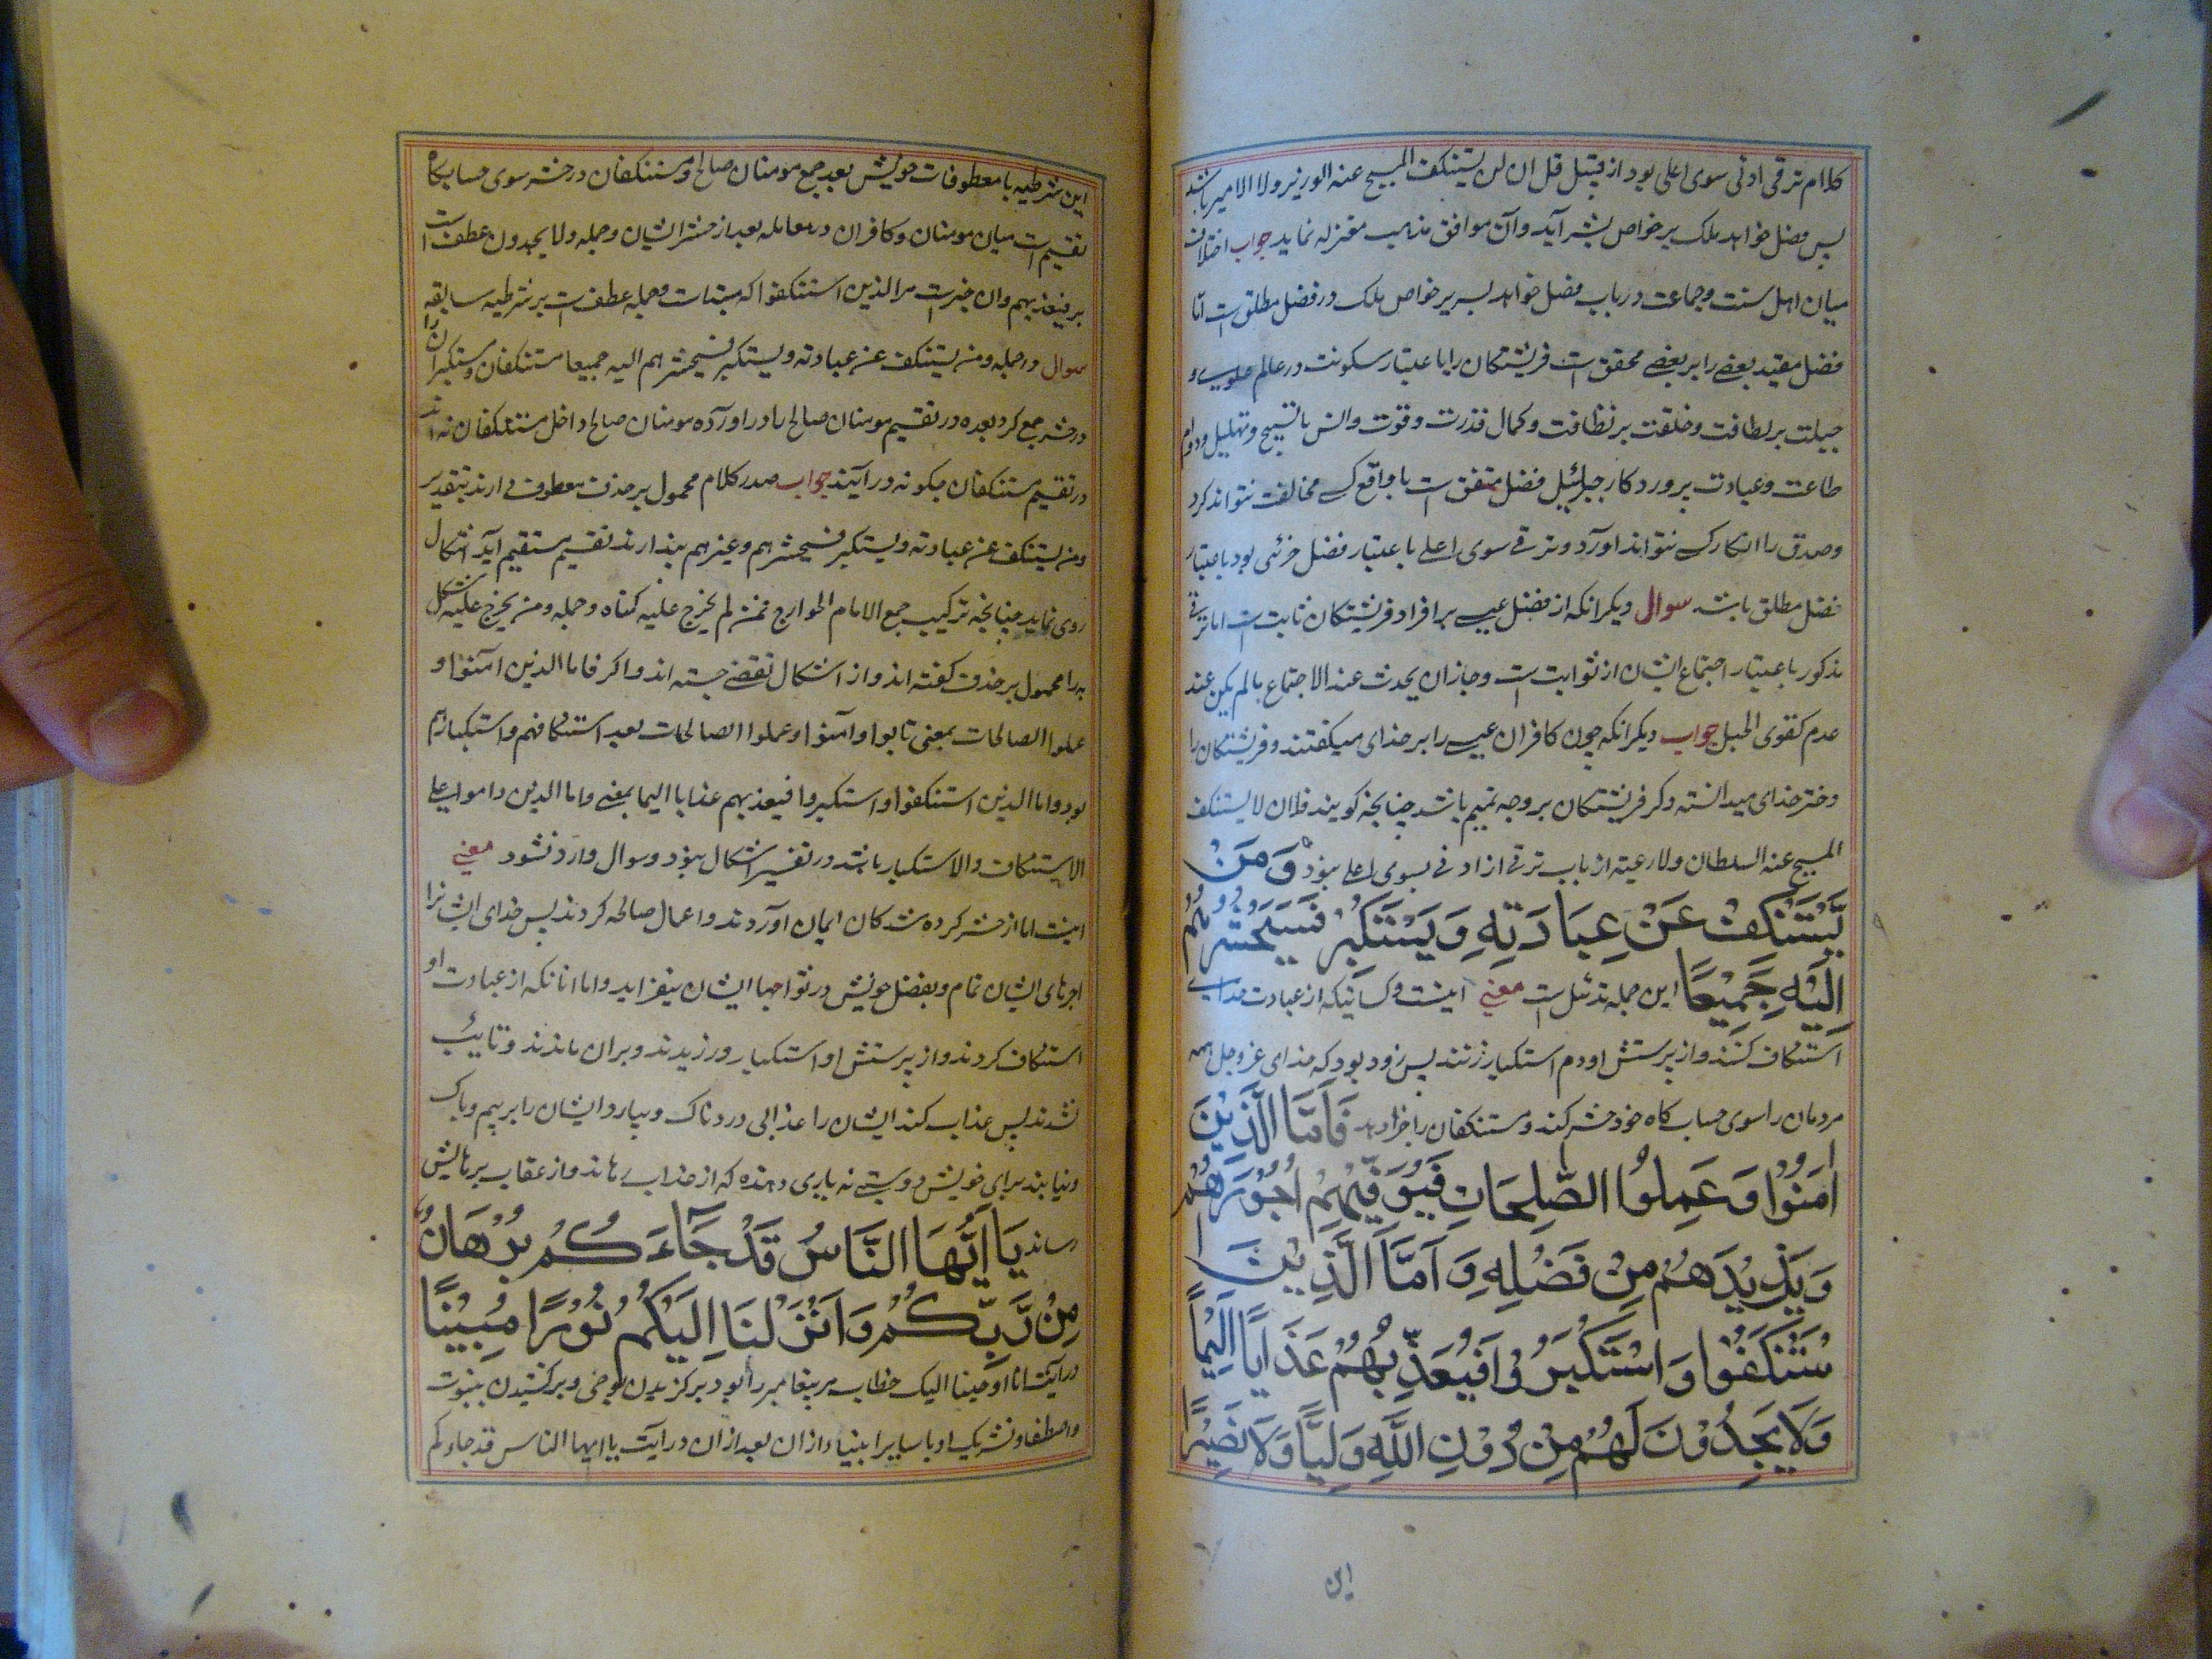 کلام ترقی ادنی سوی اعلی بود از قبیل قل ان لن یستنکف المسیح عنه الوزیر ولا الامیر باشد
پس فضل خواهد ملک بر خواص بشر آید وآن موافق مذهب معتزله نماید جواب اختلاف
میان اهل سنت وجماعت در باب فضل خواهد بر خواص ملک در فضل مطلق است اما
فضل مقید بعضی را بر بعضی محقق است فرشتکان را با عتبار سکونت در عالم علوی و
جبلت بر لطافت وخلقت بر نظافت وکمال قدرت وقوت وانس با تسبیح وتهلیل ودوام
طاعت وعبادت پروردکار جبرئیل فضل متفق است با واقع کسی مخالفت نتواند کرد
وصدق را انکار کسی نتواند آورد وترقی سوی اعلی با عتبار فضل جزئی بود با عتبار
فضل مطلق باشد سوال دیکر انکه از فضل عیسی بر افراد فرشتکان ثابت است اما ترقی
مذکور با عتبار اجتماع ایشان از ثوابت است وجاز ان یحدث عند الاجتماع ما لم یکن عند
عدم کقوی الحبل جواب دیکر انکه چون کافران عیسی را بر خدای میکفتند وفرشتکان را
دختر خدای میدانسته ذکر فرشتکان بر وجه تمیم باشد چنانچه کویند فلان لا یستنکف
المسیح عنه السلطان ولا رعیته از باب ترقی از ادنی بسوی اعلی نبود وَمَنْ
یَّسْتَنْكِفْ عَنْ عِبَادَتِهِ وَیَسْتَكْبِرْ فَسَیَحْشُرُهُمْ
اِلَیْهِ جَمِیْعًا این جمله تذئیل است معنی اینست وکسانیکه از عبادت خدای
استنکاف کنند واز پرستش او دم استکبار زنند پس زود بود که خدای عز وجل همه
مردمان را سوی حساب کاه خود حشر کند ومستنکفان را جزا دهد فَاَمَّا الَّذِیْنَ
اٰمَنُوْا وَعَمِلُوا الصّٰلِحَاتِ فَیُوَفِّیْهِمْ اُجُوْرَهُمْ
وَیَزِیْدَهُمْ مِنْ فَضْلِهِ وَاَمَّا الَّذِیْنَ ا
سْتَنْكَفُوْا وَاسْتَكْبَرُوْا فَیُعَذِّبُهُمْ عَذَابًا اَلِیْمًا
وَلَا یَجِدُوْنَ لَهُمْ مِنْ دُوْنِ اللّٰهِ وَلِیًّا وَلَا نَصِیْرًا
این
این شرطیه با معطوفات خویش بعد جمع مومنان صالح ومستنکفان در حشر سوی حسابکاه
تقسیم است میان مومنان وکافران در معامله بعد از حشر ایشان وجمله ولا یجدون عطف است
بر فیعذبهم وان خبر است مر الذین استنکفوا که مبتداست وجمله عطف است بر شرطیه سابقه
سوال در جمله ومن یستنکف عن عبادته ویستکبر فسیحشرهم الیه جمیعا مستنکفان ومستکبران را
در حشر جمع کرد بعده در تقسیم مومنان صالح را در اورده مومنان صالح داخل مستنکفان نه اند
در تقسیم مستنکفان چکونه در آیند جواب صدر کلام محمول بر حذف معطوف می دارند بتقدیر
ومن یستنکف عن عبادته ویستکبر فسیحشرهم وغیرهم پندارند تقسیم مستقیم آید اشکال
روی نماید چنانچه ترکیب جمع الامام الخوارج فمن لم یخرج علیه کساه وحمله ومن یخرج علیه نکل
به را محمول بر حذف کفته اند واز اشکال تقصی جسته اند واکر فاما الذین آمنوا و
عملوا الصالحات بمعنی تابوا وآمنوا وعملوا الصالحات بعد استنکافهم واستکبارهم
بود واما الذین استنکفوا واستکبروا فیعذبهم عذابا الیما بمعنی واما الذین داموا علی
الاستنکاف والاستکبار باشد در تفسیر اشکال نبود وسوال وارد نشود معنی
اینست اما از حشر کرده شدکان ایمان آوردند واعمال صالحه کردند پس خدای ایشانرا
اجرهای ایشان تمام وبفضل خویش در ثوابهای ایشان بیفزاید واما انانکه از عبادت او
استنکاف کردند واز پرستش او استکبار ورزیدند وبران ماندند وتایب
نشدند پس عذاب کند ایشان را عذابی دردناک وبیارد ایشان را بر بیم وباک
ونیابند برای خویش دوستی نه یاری دهنده که از عذاب رهاند واز عقاب برهایش
رساند یَا اَیُّهَا النَّاسُ قَدْ جَآءَكُمْ بُرْهَانٌ
مِنْ رَّبِّكُمْ وَاَنْزَلْنَا اِلَیْكُمْ نُوْرًا مُبِیْنًا
در آیت انا اوحینا الیک خطاب مر پیغامبر را بود برکزیدن بوحی وبرکشیدن بنبوت
واصطفا وتشریک او با سایر انبیاء از ان بعد از ان در آیت یا ایها الناس قد جاءکم